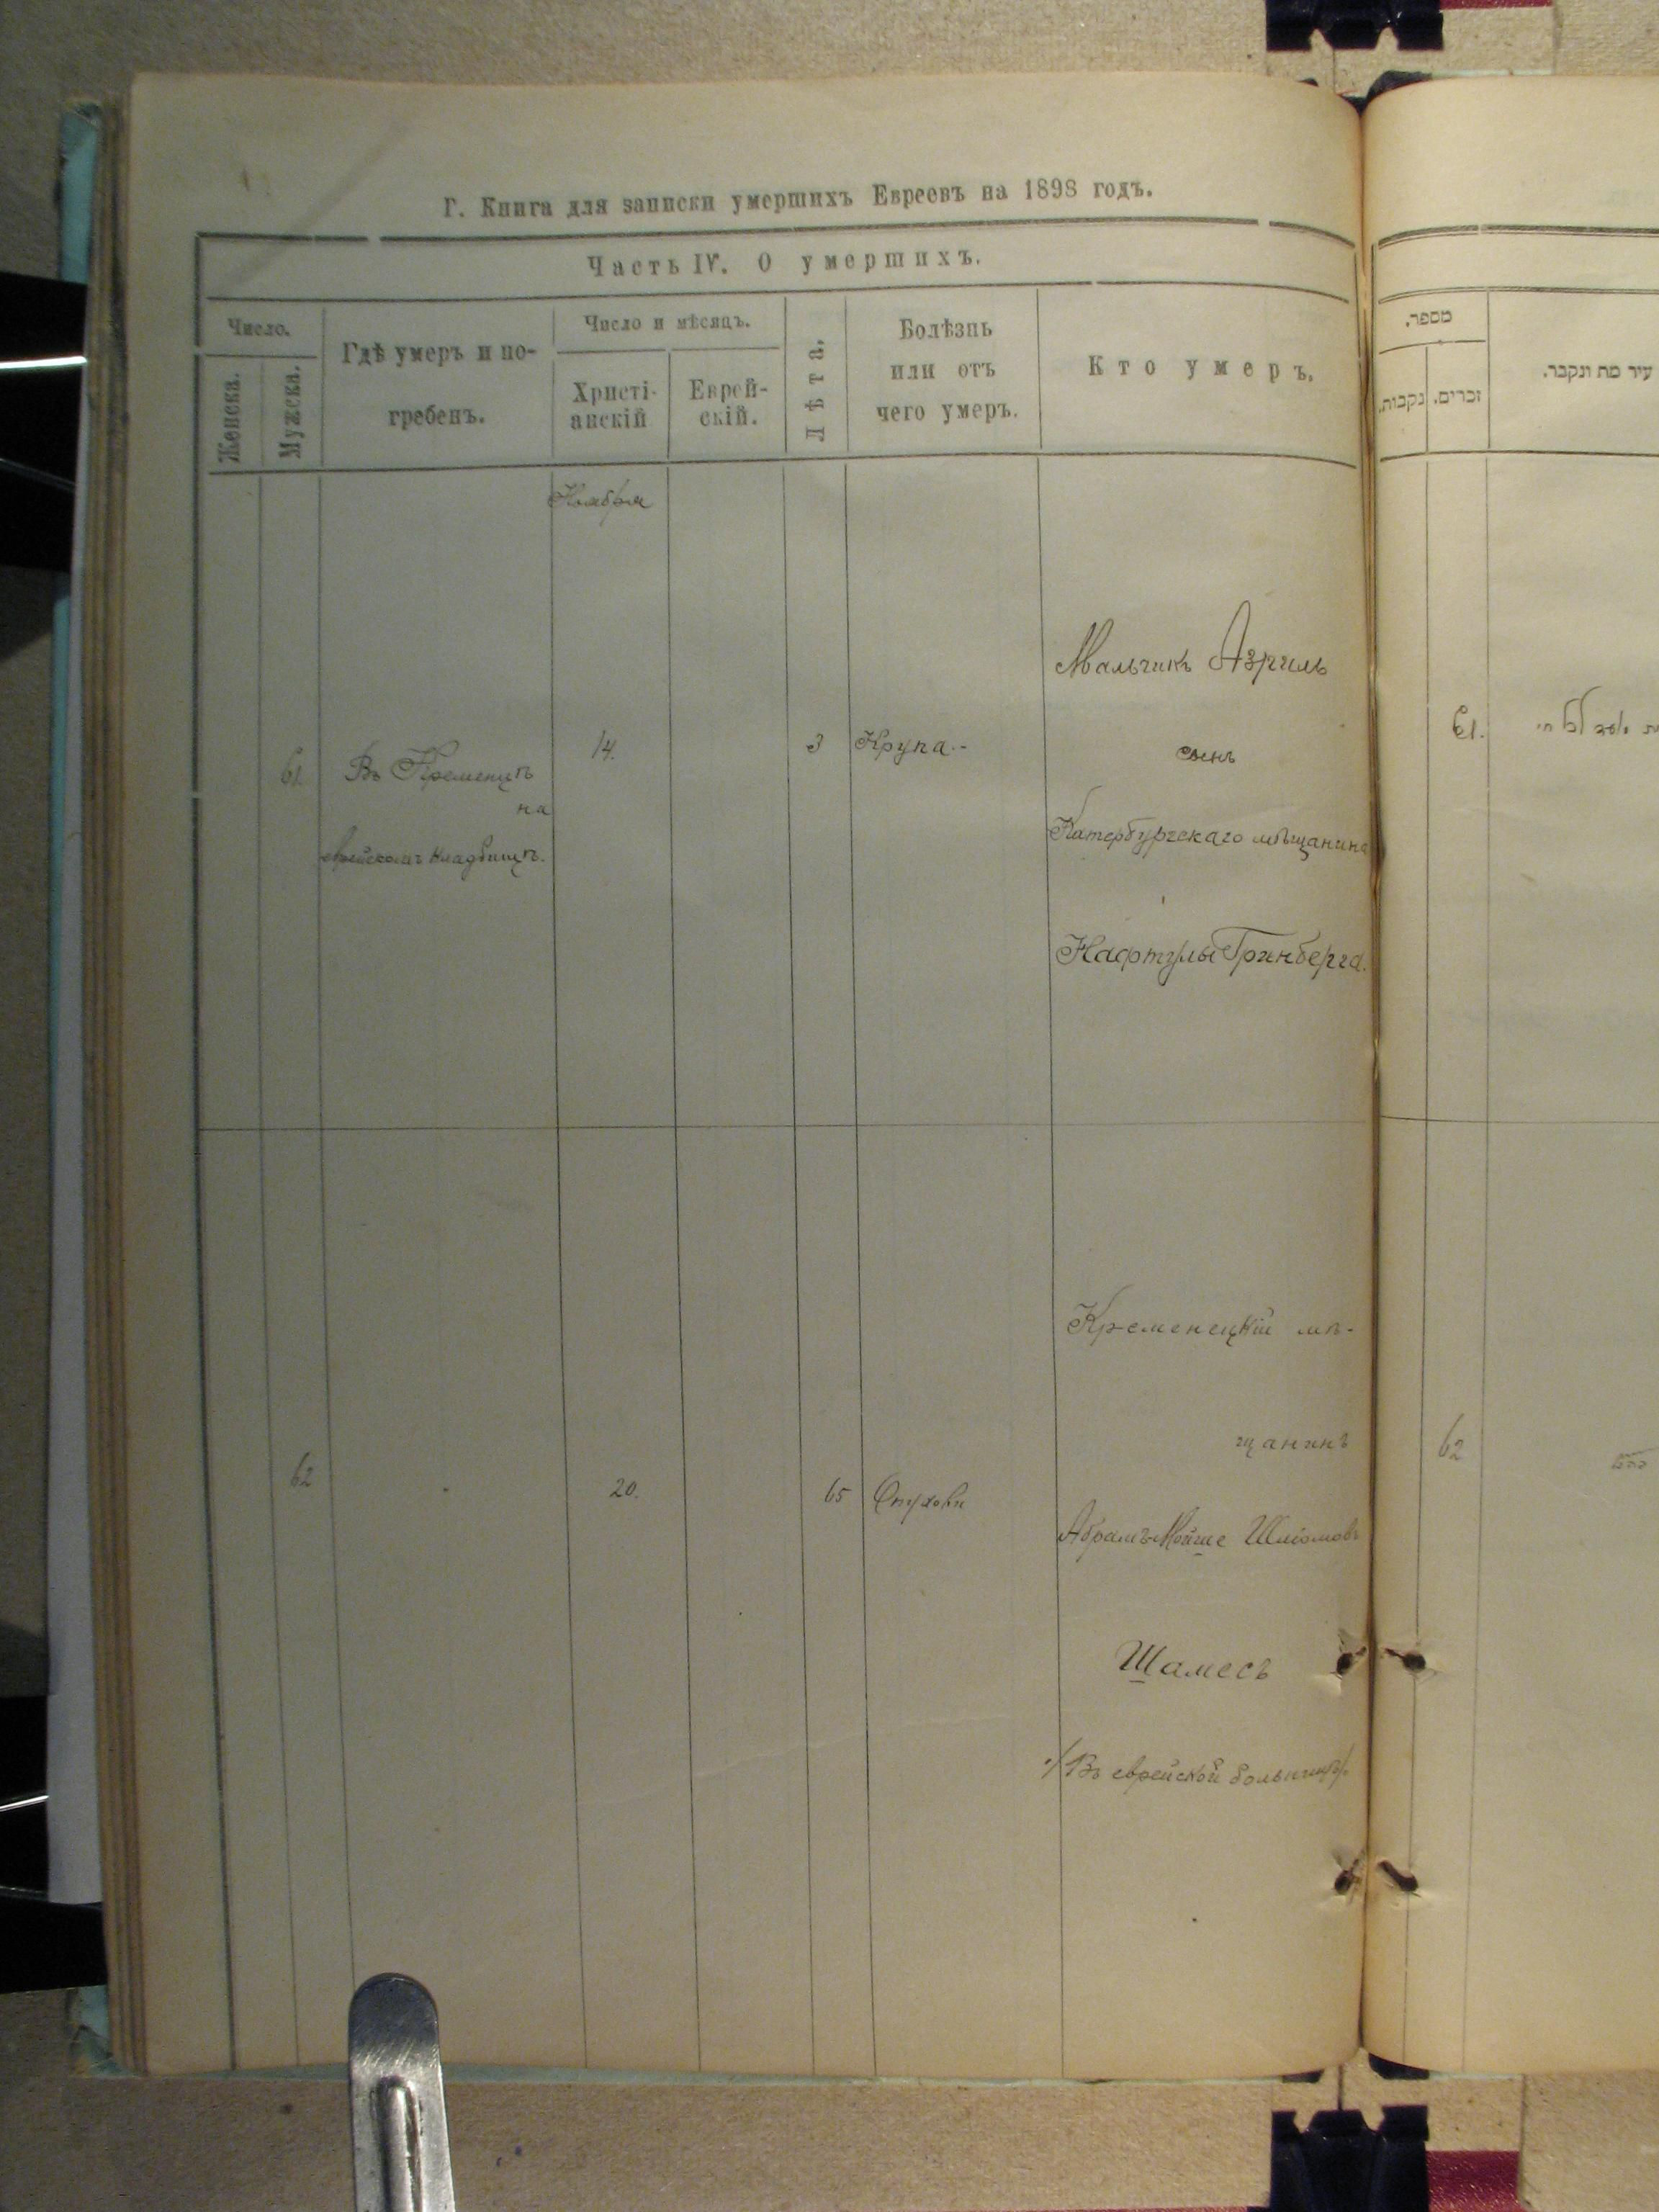 Г. Книга для записки умершихъ Евреевъ на 1898 годъ.
Часть IV. О умершихъ.
Число.
Женска.
Мужска.
Гдѣ умеръ и по-
гребенъ.
Число и мѣсяцъ.
Христі-
анскій
Еврей-
скій.
Лѣта.
Болѣзнь
или отъ
чего умеръ.
Кто умеръ.
Ноября
61.
Въ Кременцѣ
на
еврейскомъ кладбищѣ.
14.
3
Крупа.-
Мальчикъ Азриль
сынъ
Катербургскаго мѣщанина
Нафтулы Гринберга.
62
20.
65
Кременецкій мѣ-
щанинъ
Абрамъ-Мойше Шліомовъ
Шамесъ
/Въ еврейской больницѣ/.
מספר.
נקבות.
זכרים.
עיר מת ונקבר.
61.
62